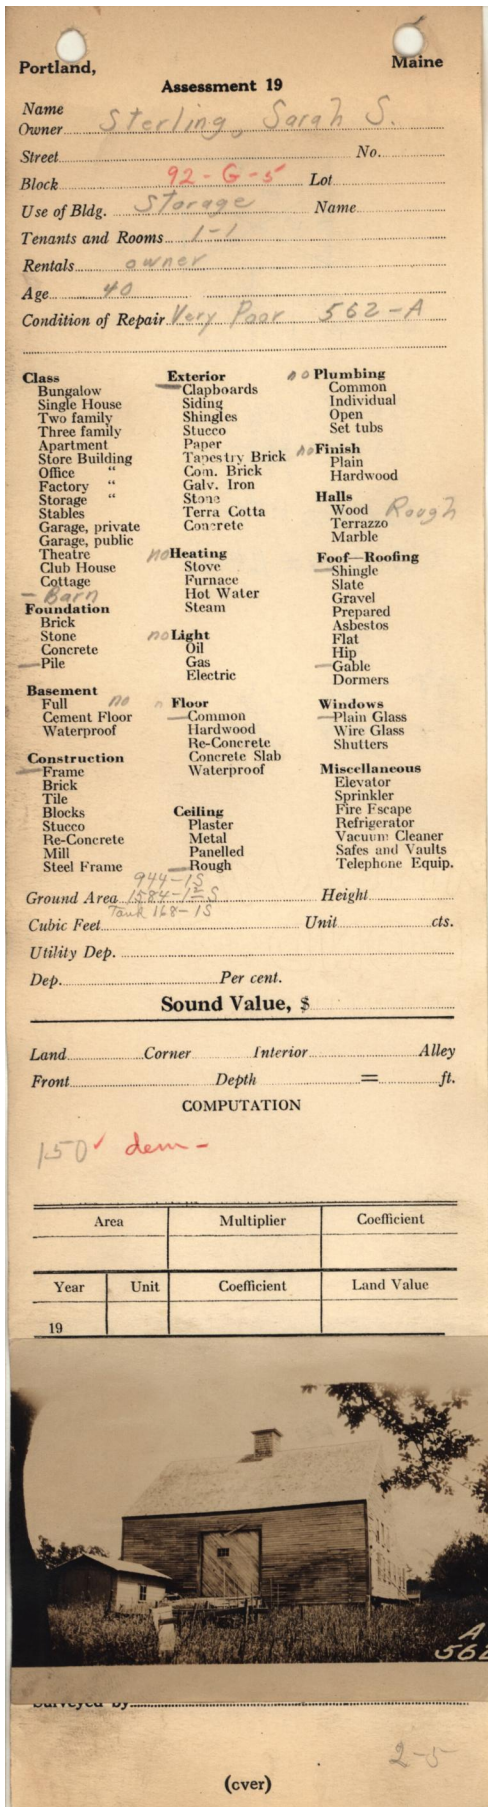 Portland, Maine
Assessment 19
Name
Owner Sterling, Sarah S.
Street No.
Block 92-G-5 Lot
Use of Bldg. Storage Name
Tenants and Rooms 1-1
Rentals owner
Age 40
Condition of Repair Very Poor 562-A
Class
Bungalow
Single House
Two family
Three family
Apartment
Store Building
Office "
Factory "
Storage "
Stables
Garage, private
Garage, public
Theatre
Club House
Cottage
- Barn
Foundation
Brick
Stone
Concrete
Pile
Basement
Full no
Cement Floor
Waterproof
Construction
Frame
Brick
Tile
Blocks
Stucco
Re-Concrete
Mill
Steel Frame
Exterior
Clapboards
Siding
Shingles
Stucco
Paper
Tapestry Brick
Com. Brick
Galv. Iron
Stone
Terra Cotta
Concrete
no Heating
Stove
Furnace
Hot Water
Steam
no Light
Oil
Gas
Electric
Floor
Common
Hardwood
Re-Concrete
Concrete Slab
Waterproof
Ceiling
Plaster
Metal
Panelled
Rough
no Plumbing
Common
Individual
Open
Set tubs
no Finish
Plain
Hardwood
Halls
Wood Rough
Terrazzo
Marble
Foof—Roofing
Shingle
Slate
Gravel
Prepared
Asbestos
Flat
Hip
Gable
Dormers
Windows
Plain Glass
Wire Glass
Shutters
Miscellaneous
Elevator
Sprinkler
Fire Escape
Refrigerator
Vacuum Cleaner
Safes and Vaults
Telephone Equip.
944-1S
Ground Area 1584-1½S Height
Tank 168-1S
Cubic Feet Unit cts.
Utility Dep.
Dep. Per cent.
Sound Value, $
Land Corner Interior Alley
Front Depth = ft.
COMPUTATION
150 ✓ dem-
Area Multiplier Coefficient
Year Unit Coefficient Land Value
19
A
562
Surveyed by
2-5
(cver)